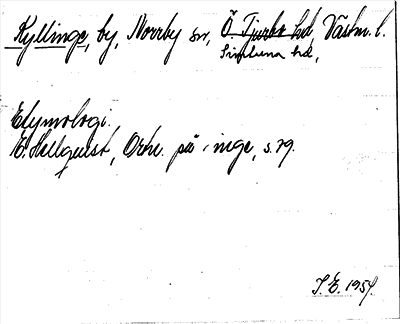 Kyllinge, by, Norrby sn, Ö. Tjurbo hd, Västm. l.
Simtuna hd,
Etymologi.
E. Hellquist, Ortn. på -inge, s. 79.
I. E. 1954.